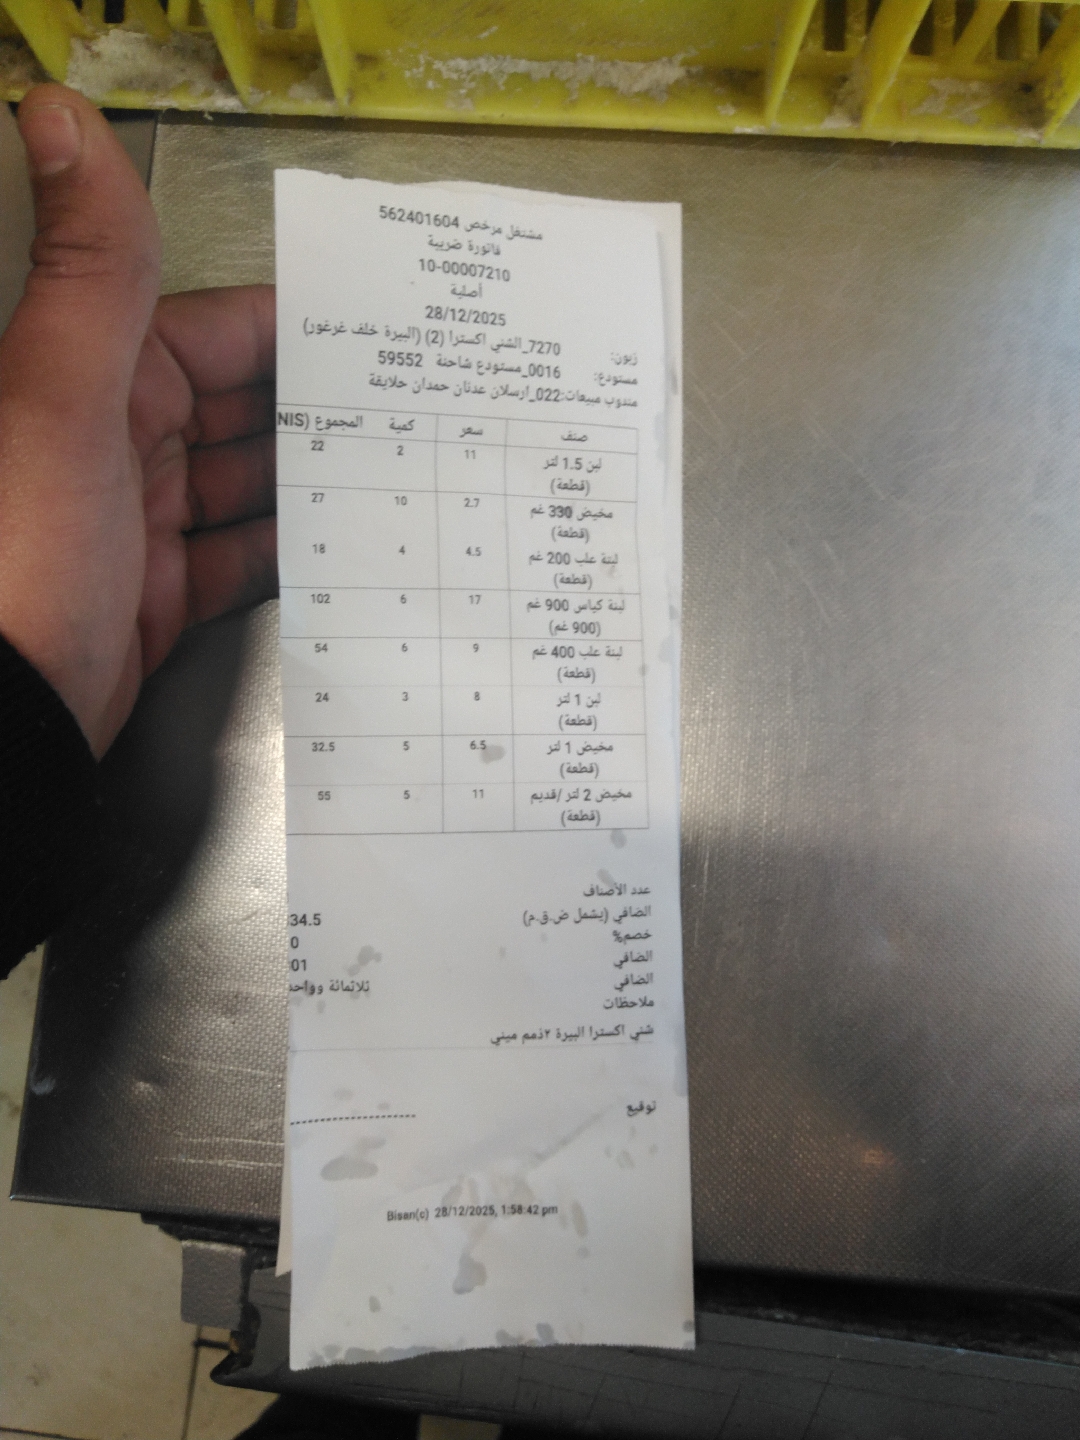 مشتغل مرخص 562401604
فاتورة ضريبة
10-00007210
أصلية
28/12/2025
زبون: 7270_الشني اكسترا (2) (البيرة خلف غرغور)
مستودع: 0016_مستودع شاحنة 59552
مندوب مبيعات:022_ارسلان عدنان حمدان حلايقة
صنف سعر كمية المجموع (NIS
لبن 1.5 لتر 11 2 22
(قطعة)
مخيض 330 غم 2.7 10 27
(قطعة)
لبنة علب 200 غم 4.5 4 18
(قطعة)
لبنة كياس 900 غم 17 6 102
(900 غم)
لبنة علب 400 غم 9 6 54
(قطعة)
لبن 1 لتر 8 3 24
(قطعة)
مخيض 1 لتر 6.5 5 32.5
(قطعة)
مخيض 2 لتر /قديم 11 5 55
(قطعة)
عدد الأصناف
الضافي (يشمل ض.ق.م) 34.5
خصم% 0
الضافي 01
الضافي ثلاثمائة وواحد
ملاحظات
شني اكسترا البيرة ٢ذمم ميني
توقيع
Bisan(c) 28/12/2025, 1:58:42 pm